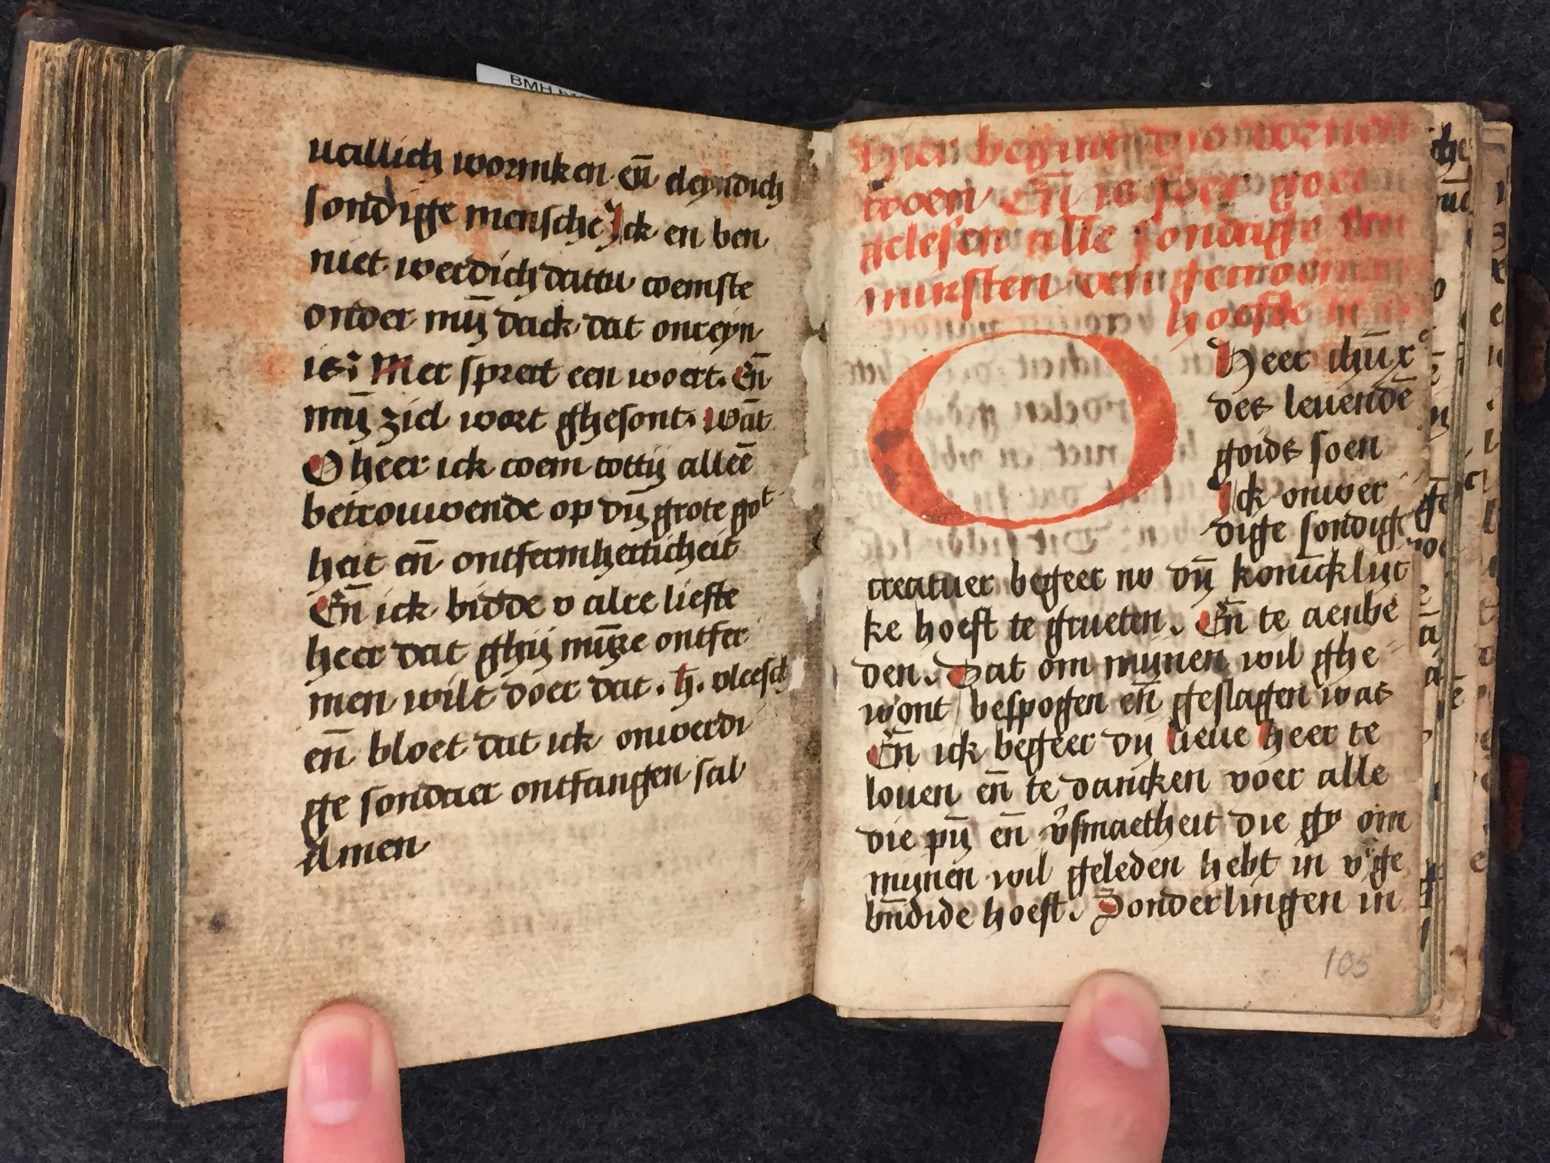 BMH
uallich wormken eñ eleyndich
sondige mensche Ick en ben
niet werdich dattu coemste
onder mÿ̄ dack dat onreyn
is: Mer spreet een woert. Eñ
mÿ̄ ziel wort ghesont. wāt
O heer ick coem totty alleē
betrouwende op dÿ̄ grote got
heit eñ ontfermherticheit
Eñ ick bidde v alre liefste
heer dat ghij mÿ̄re ontfer
men wilt doer dat .h. vleesch
eñ bloet dat ick onwerdi
ge sondaer ontfangen sal
Amen
Hier
gelesen alle sondage
hoefde
O
Heer ihūx
des leuendē
goids soen
Ick onwer
dige sondige
creatuer begeer nv dÿ̄ konīcklijc
ke hoeft te grueten. Eñ te aenbe
den. Dat om mynen wil ghe
wont bespogen eñ geslagen was
Eñ ick begeer dy lieue heer te
louen eñ te dancken voer alle
die pÿ̄ eñ v̄smaetheit die gy om
mynen wil geleden hebt in v ge
bn̄dide hoeft. Zonderlingen in
105